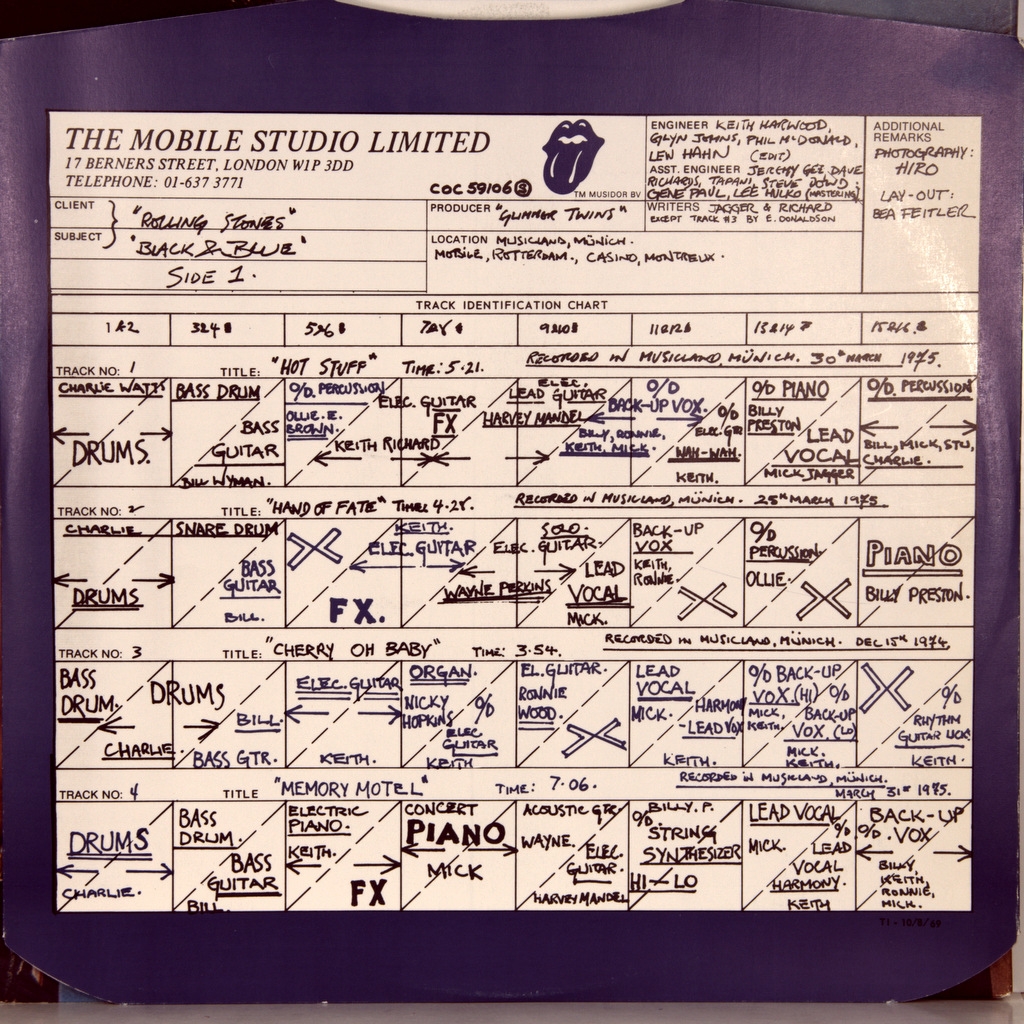 THE MOBILE STUDIO LIMITED
17 BERNERS STREET, LONDON W1P 3DD
TELEPHONE: 01-637 3771
COC 59106 Ⓢ
TM MUSIDOR BV
ENGINEER KEITH HARWOOD,
GLYN JOHNS, PHIL McDONALD,
LEW HAHN (EDIT)
ASST. ENGINEER JEREMY GEE DAVE
RICHARDS, TAPANI, STEVE DOWD;
GENE PAUL, LEE HULKO (MASTERING)
WRITERS JAGGER & RICHARD
EXCEPT TRACK #3 BY E. DONALDSON
ADDITIONAL
REMARKS
PHOTOGRAPHY:
HIRO
LAY-OUT:
BEA FEITLER
CLIENT "ROLLING STONES"
SUBJECT "BLACK & BLUE"
SIDE 1.
PRODUCER "GLIMMER TWINS"
LOCATION MUSICLAND, MÜNICH.
MOBILE, ROTTERDAM., CASINO, MONTREUX.
TRACK IDENTIFICATION CHART
1&2 3&4 5&6 7&8 9&10 11&12 13&14 15&16
TRACK NO: 1 TITLE: "HOT STUFF" TIME: 5·21. RECORDED IN MUSICLAND, MÜNICH. 30th MARCH 1975.
CHARLIE WATTS
DRUMS.
BASS DRUM
BASS
GUITAR
BILL WYMAN.
O/D. PERCUSSION
OLLIE. E.
BROWN.
ELEC. GUITAR
FX
KEITH RICHARD
ELEC.
LEAD GUITAR
HARVEY MANDEL
O/D
BACK-UP VOX.
BILLY, RONNIE,
KEITH, MICK.
O/D
ELEC. GTR
WAH-WAH.
KEITH.
O/D PIANO
BILLY
PRESTON
LEAD
VOCAL
MICK JAGGER
O/D. PERCUSSION
BILL, MICK, STU,
CHARLIE.
TRACK NO: 2 TITLE: "HAND OF FATE" TIME: 4·28. RECORDED IN MUSICLAND, MÜNICH. 25th MARCH 1975
CHARLIE
DRUMS
SNARE DRUM
BASS
GUITAR
BILL.
FX.
KEITH.
ELEC. GUITAR
SOLO.
ELEC. GUITAR.
WAYNE PERKINS
LEAD
VOCAL
MICK.
BACK-UP
VOX
KEITH,
RONNIE.
O/D
PERCUSSION
OLLIE.
PIANO
BILLY PRESTON.
TRACK NO: 3 TITLE: "CHERRY OH BABY" TIME: 3·54. RECORDED IN MUSICLAND, MÜNICH. DEC 15th 1974,
BASS
DRUM.
DRUMS
CHARLIE.
BILL.
BASS GTR.
ELEC. GUITAR
KEITH.
ORGAN.
NICKY
HOPKINS
O/D
ELEC
GUITAR
KEITH
EL. GUITAR.
RONNIE
WOOD.
LEAD
VOCAL
MICK.
HARMONY
-LEAD VOX
KEITH.
O/D BACK-UP
VOX. (HI) O/D
MICK, BACK-UP
KEITH. VOX. (LO)
MICK.
KEITH.
O/D
RHYTHM
GUITAR LICK.
KEITH.
TRACK NO: 4 TITLE "MEMORY MOTEL" TIME: 7·06. RECORDED IN MUSICLAND, MÜNICH.
MARCH 31st 1975.
DRUMS
CHARLIE.
BASS
DRUM.
BASS
GUITAR
BILL.
ELECTRIC
PIANO.
KEITH.
FX
CONCERT
PIANO
MICK
ACOUSTIC GTR.
WAYNE.
ELEC.
GUITAR.
HARVEY MANDEL
BILLY. P.
O/D STRING
SYNTHESIZER
HI-LO
LEAD VOCAL
MICK.
O/D
LEAD
VOCAL
HARMONY.
KEITH
BACK-UP
O/D. VOX
BILLY,
KEITH,
RONNIE,
MICK.
T1 - 10/8/69